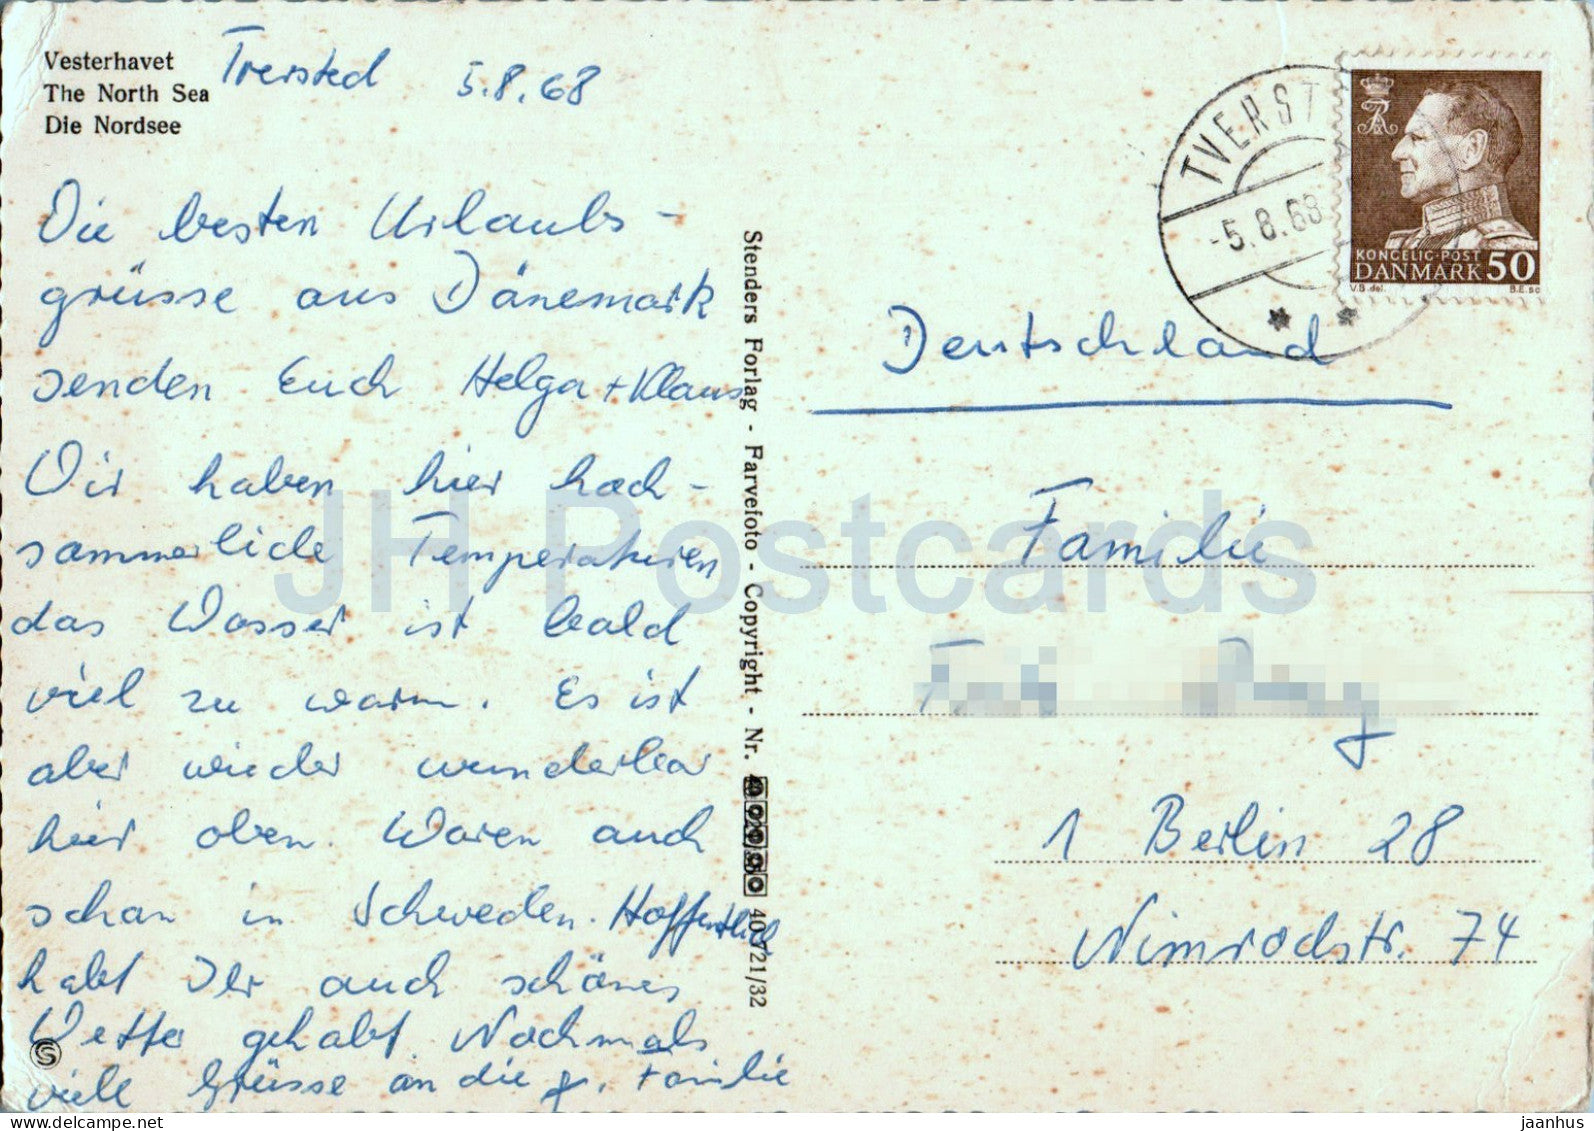 Vesterhavet
The North Sea
Die Nordsee
Tversted 5.8.68
Die besten Urlaubs-
grüsse aus Dänemark
senden Euch Helga + Klaus
Wir haben hier hoch-
sommerliche Temperaturen
das Wasser ist bald
viel zu warm. Es ist
aber wieder wunderbar
hier oben. Waren auch
schon in Schweden. Hoffentlich
habt Ihr auch schönes
Wetter gehabt. Nochmals
viele Grüsse an die g. Familie
Stenders Forlag - Farvefoto - Copyright - Nr. 40 721/32
TVERST
-5.8.68
KONGELIG·POST
DANMARK 50
V.B. del. B.E. sc
Deutschland
Familie
1 Berlin 28
Nimrodstr. 74
JH Postcards
jaanhus @ delcampe.net